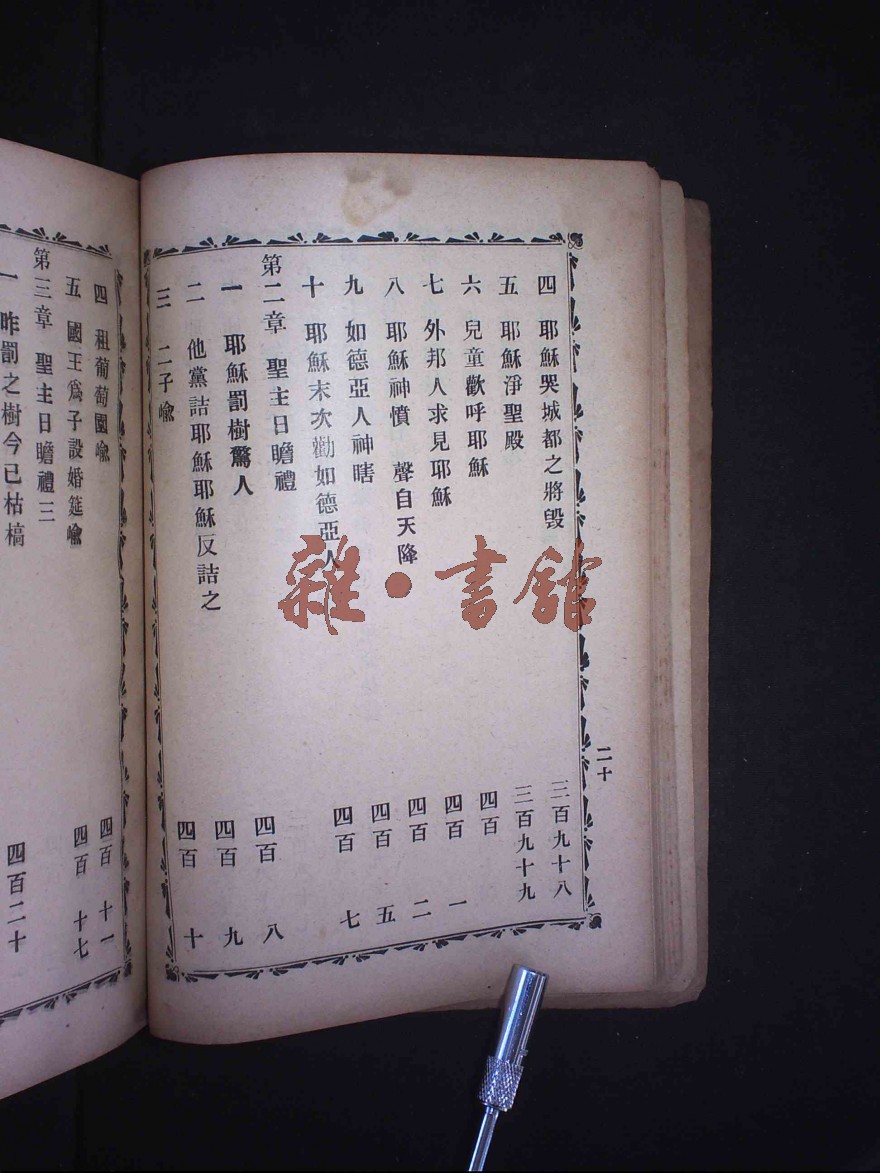 四 耶穌哭城都之將毀 三百九十八
五 耶穌淨聖殿 三百九十九
六 兒童歡呼耶穌 四百
七 外邦人求見耶穌 四百 一
八 耶穌神憤 聲自天降 四百 二
九 如德亞人神瞎 四百 五
十 耶穌末次勸如德亞人 四百 七
第二章 聖主日瞻禮
一 耶穌罰樹驚人 四百 八
二 他黨詰耶穌耶穌反詰之 四百 九
三 二子喩 四百 十
二十
四 租葡萄園喩 四百 十一
五 國王爲子設婚筵喩 四百 十七
第三章 聖主日瞻禮三
一 昨罰之樹今已枯槁 四百二十
雜·書館